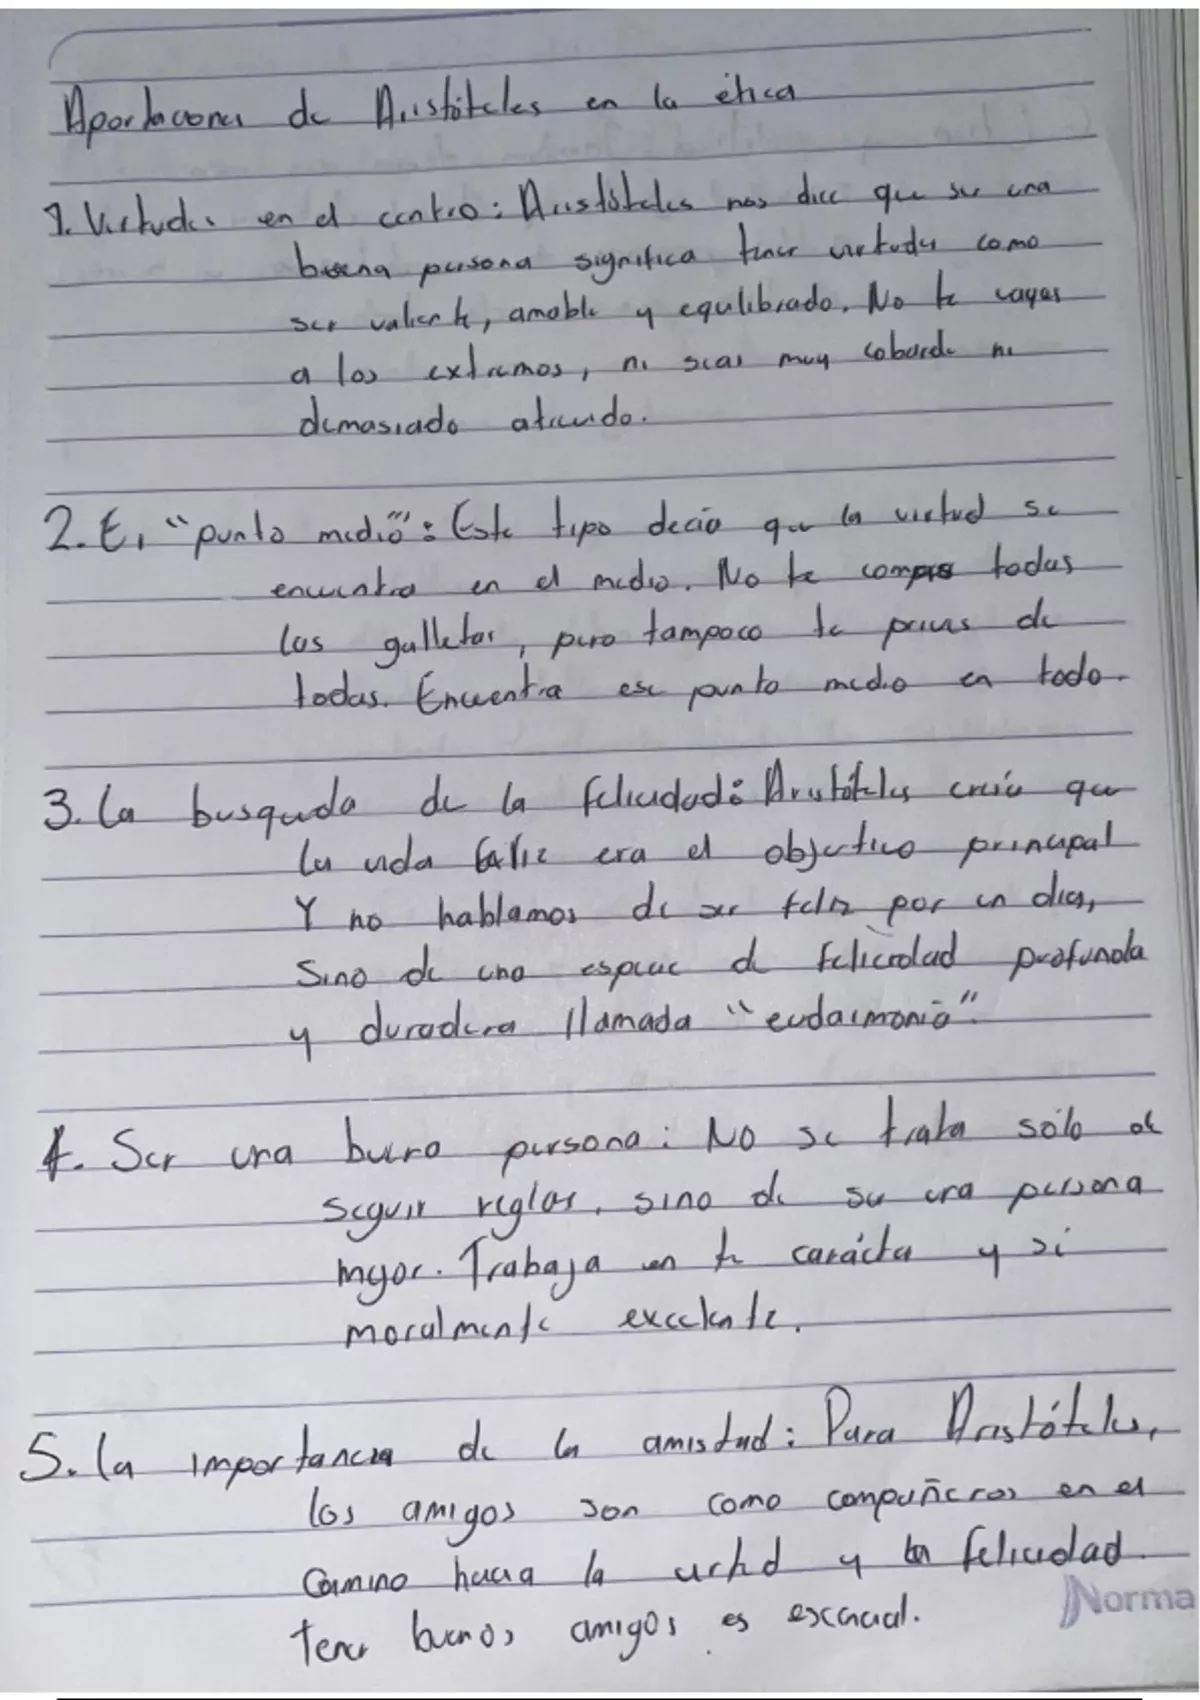 Aportaciones de Aristóteles en la ética
1. Virtudes en el centro: Aristóteles nos dice que ser una
buena persona significa tener virtudes como
ser valiente, amable y equlibrado. No te vayas
a los extremos, ni seas muy cobarde ni
demasiado atrevido.
2. El "punto medio": Este tipo decía que la virtud se
encuentra en el medio. No te compres todas
las galletas, pero tampoco te prives de
todas. Encuentra ese punto medio en todo.
3. La busqueda de la felicidad: Aristóteles creía que
la vida feliz era el objetivo principal
Y no hablamos de ser feliz por un dia,
Sino de una especie de felicidad profunda
y duradera llamada "eudaimonia".
4. Ser una buena persona: No se trata sólo de
seguir reglas, sino de ser una persona
mejor. Trabaja en tu carácter y sé
moralmente excelente.
5. La importancia de la amistad: Para Aristóteles,
los amigos son como compañeros en el
Camino hacia la virtud y la felicidad.
tener buenos amigos es esencial.
Norma